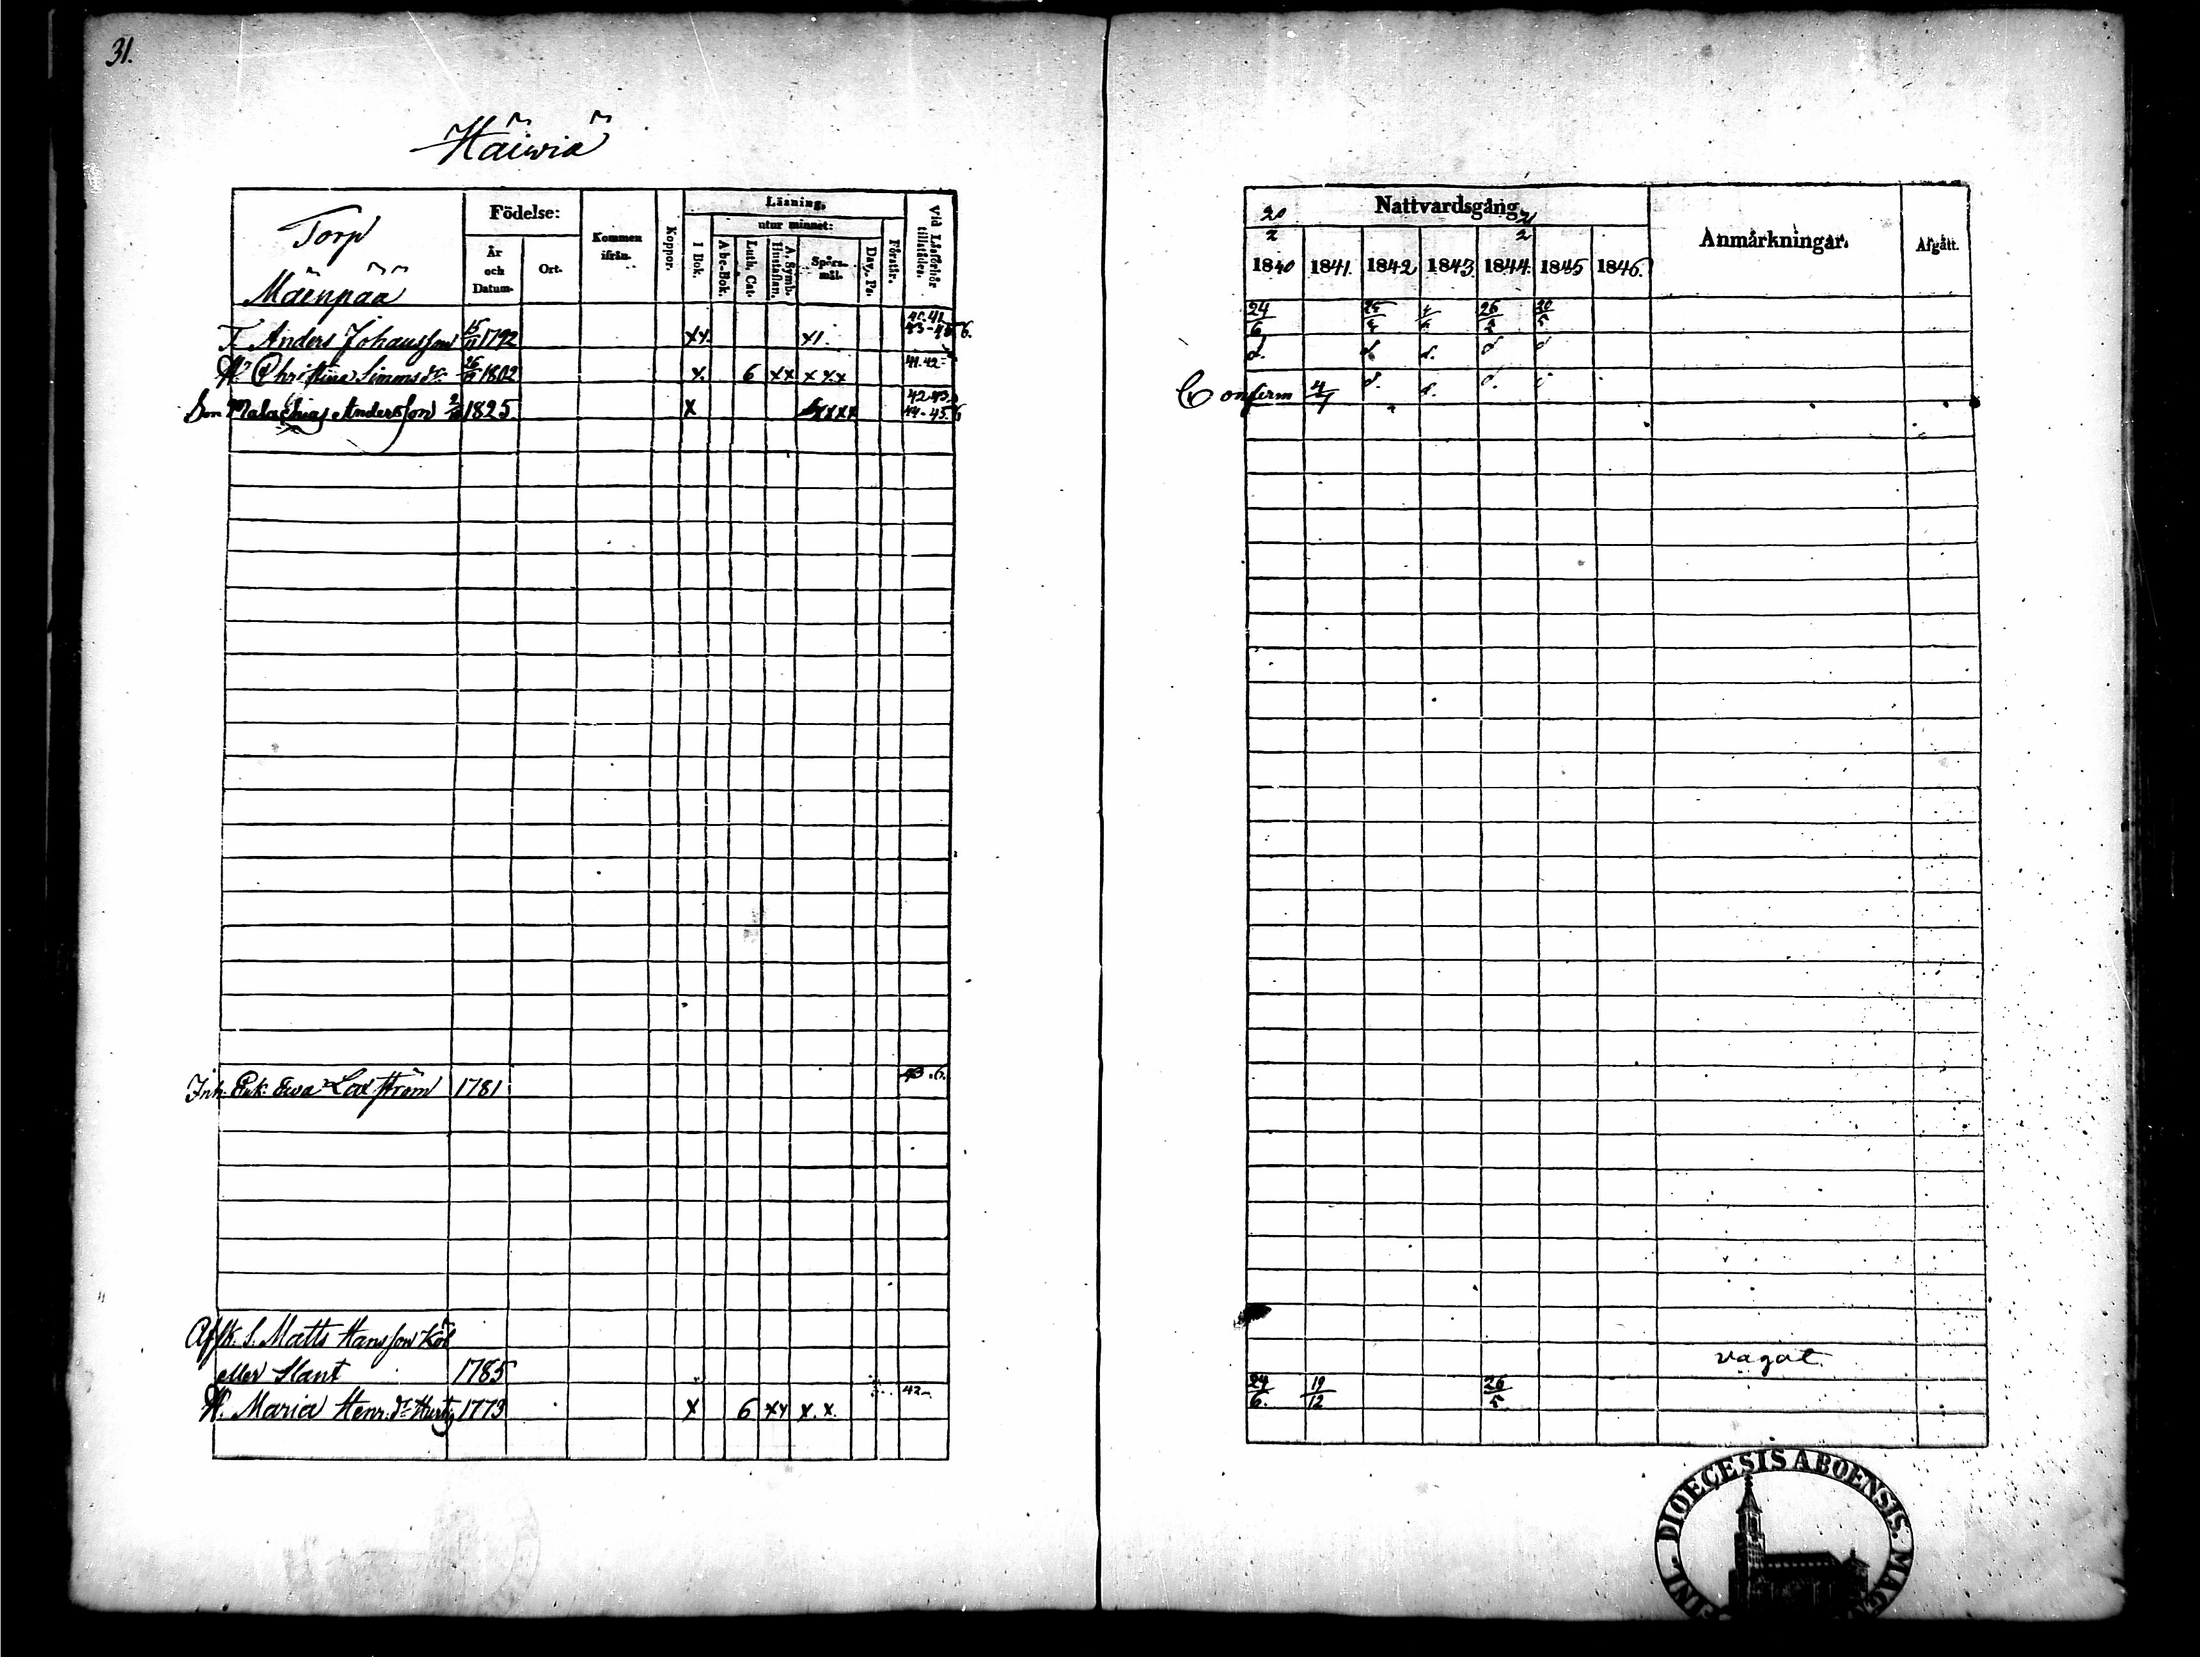 31.
Häiwiä
Torp
Mäenpää
Födelse:
År
och
Datum.
Ort.
Kommen
ifrån.
Koppor.
Läsning,
utur minnet:
I Bok.
Abc-Bok.
Luth. Cat.
A. Symb.
Hustaflan.
Spörs-
mål.
Dav. Ps.
Förstår.
Vid Läsförhör
tillstädes.
T. Anders Johansson 15 1792 xx. x1. 40.41. 43-45 6.
H. Christina Simonsdr. 26 1802 x. 6 xx xxx 41.42-
Son Malachias Andersson 1825. x xxxx 42.43. 44-45. 6
Inh. Enk. Ewa Laxström 1781 43.6.
Afsk. S. Matts Hansson
eller Slant 1785
H. Maria Henr. dr 1773 x 6 xx x.x. 42-
20
2
Nattvardsgång,
2
2
1840 1841. 1842 1843 1844. 1845 1846.
Anmärkningar.
Afgått.
24/6 26 20/5
d. d. d. d d
Confirm 4/7 d. d. d.
vagat
24/6. 19/12 26/5
FINL. DIOECESIS ABOENSIS. MAG